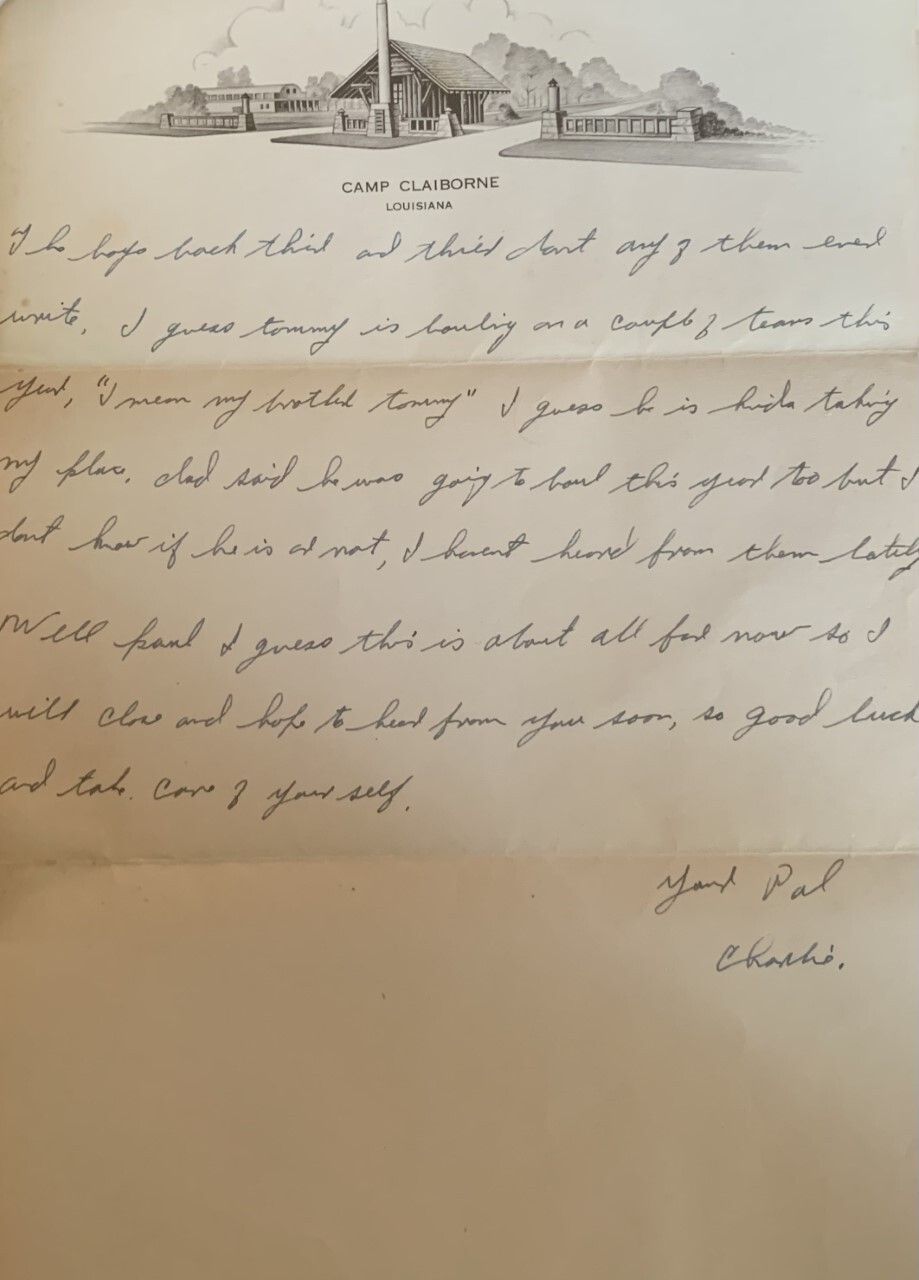 CAMP CLAIBORNE
LOUISIANA
The boys back thier and thier dont any of them ever
write, I guess tommy is bowling on a couple of teams this
year, "I mean my brother tommy" I guess he is kinda taking
my place. dad said he was going to bowl this year too but I
dont know if he is or not, I havent heard from them lately
Well paul I guess this is about all for now so I
will close and hope to hear from you soon, so good luck
and take care of your self.
Your Pal
Charlie.